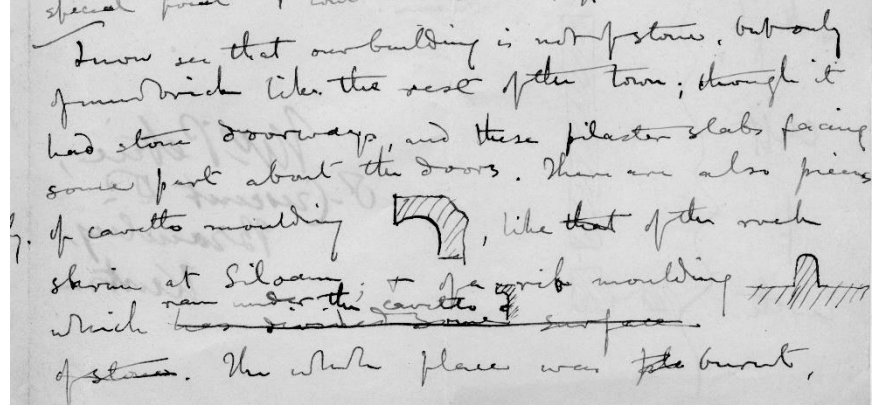 special point
I now see that our building is not of stone, but only
of mud brick like the rest of the town; though it
had stone doorways, and these pilaster slabs facing
some part about the doors. There are also pieces
of cavetto moulding , like that of the rock
shrine at Siloam; & of a rib moulding
ran under the cavetto
which has divided some surface
of stone. The whole place was burnt,